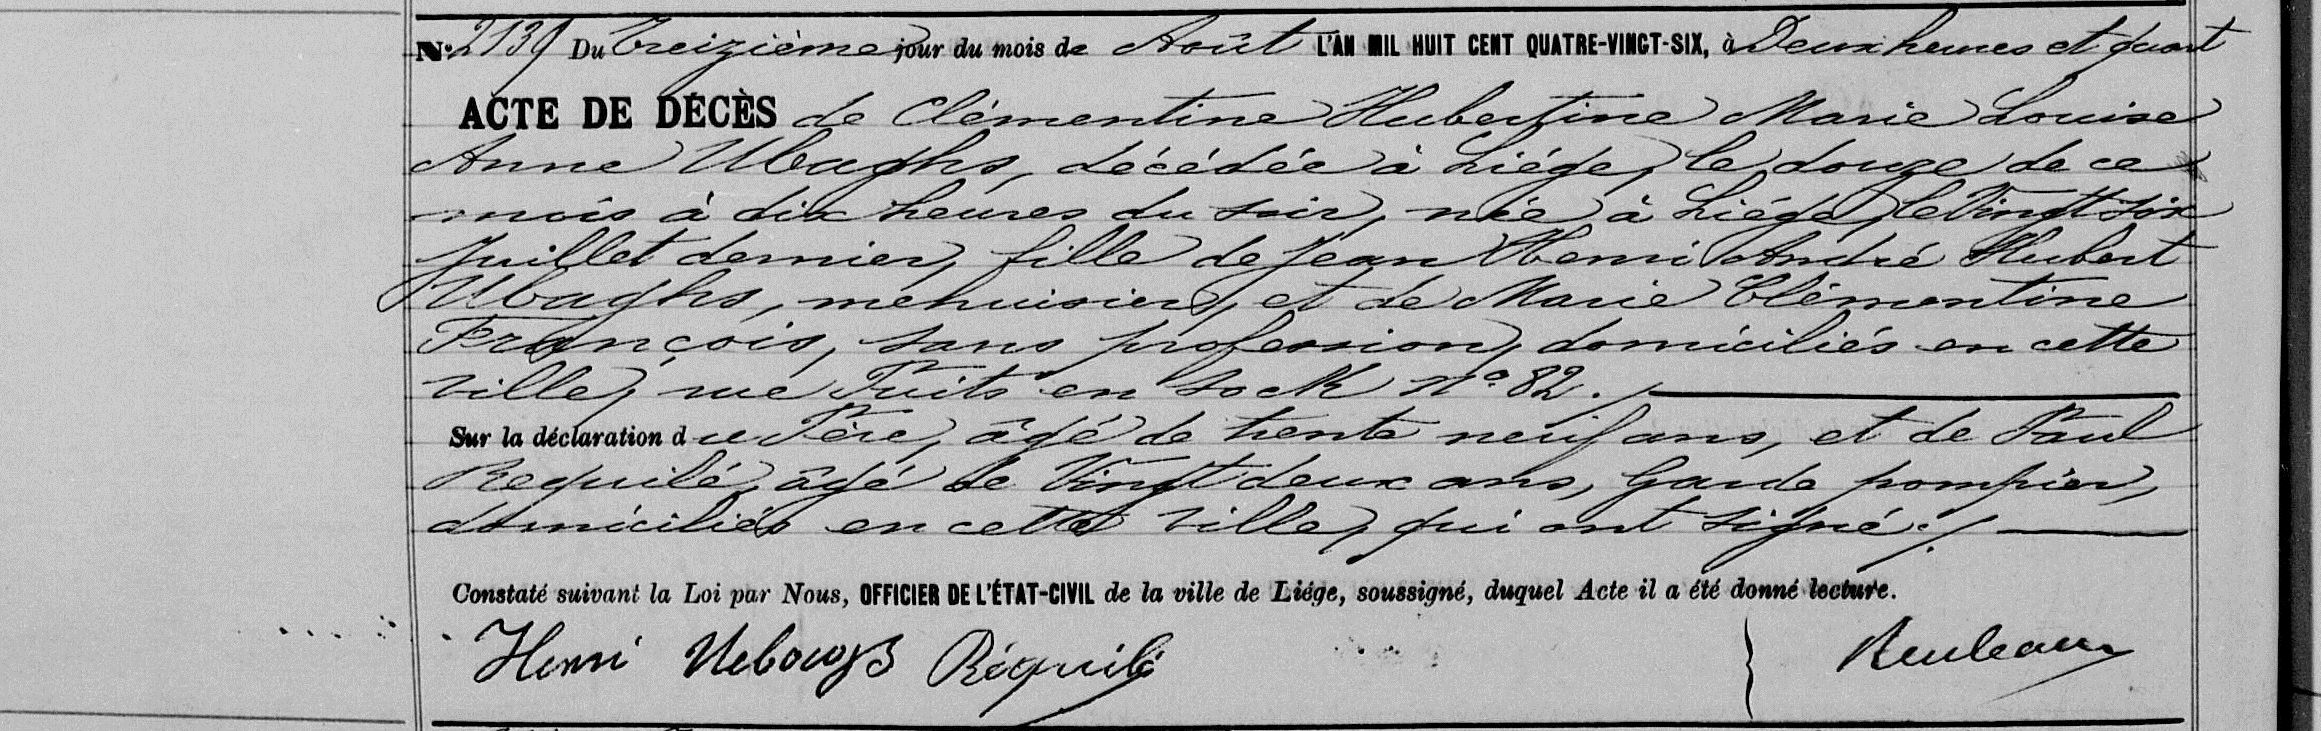 N° 2139 Du treizième jour du mois de Août L'AN MIL HUIT CENT QUATRE-VINGT-SIX, à Deux heures et quart
ACTE DE DÉCÈS de Clémentine Hubertine Marie Louise
Anne Ubaghs, décédée à Liége, le douze de ce
mois à dix heures du soir, née à Liége, le Vingt six
juillet dernier, fille de Jean Henri André Hubert
Ubaghs, menuisier, et de Marie Clémentine
François, sans profession, domiciliés en cette
ville, rue Puits en sock n° 82. /
Sur la déclaration du Père, âgé de trente neuf ans, et de Paul
Requilé, âgé de Vingt deux ans, Garde pompier,
domiciliés en cette ville, qui ont signé. /
Constaté suivant la Loi par Nous, OFFICIER DE L'ÉTAT-CIVIL de la ville de Liége, soussigné, duquel Acte il a été donné lecture.
Henri Réquilé